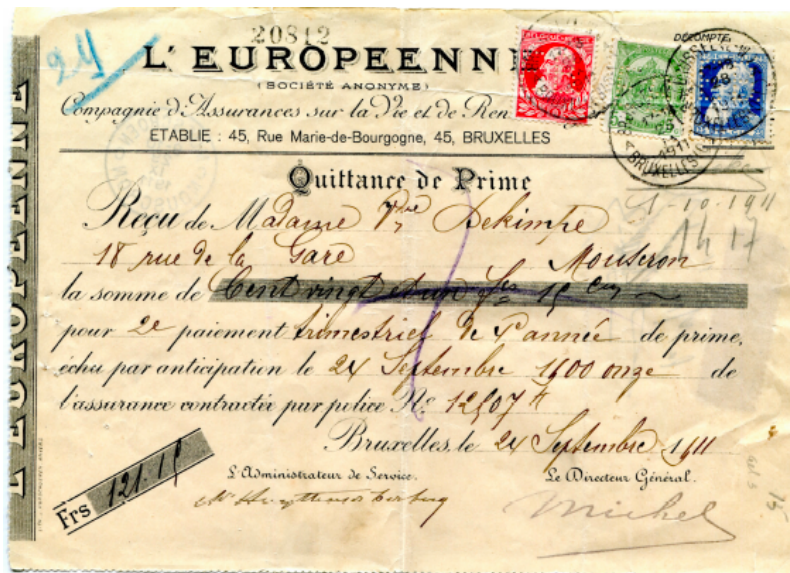 24
20812
DÉCOMPTE
L'EUROPEENNE
(SOCIÉTÉ ANONYME)
Compagnie d'Assurances sur la Vie et de Ren
ÉTABLIE : 45, Rue Marie-de-Bourgogne, 45, BRUXELLES
BRUXELLES
1911
Quittance de Prime
1-10-1911
14 17
Reçu de Madame Vve Dekimpe
18 rue de la Gare Mouscron
la somme de Cent vingt et un fcs 15 cms
pour 2e paiement trimestriel de l'année de prime,
échu par anticipation le 24 Septembre 1900 onze de
l'assurance contractée par police No 12507
Bruxelles, le 24 Septembre 1911
L'Administrateur de Service.
Le Directeur Général.
Frs 121.15
Michel
L'EUROPEENNE